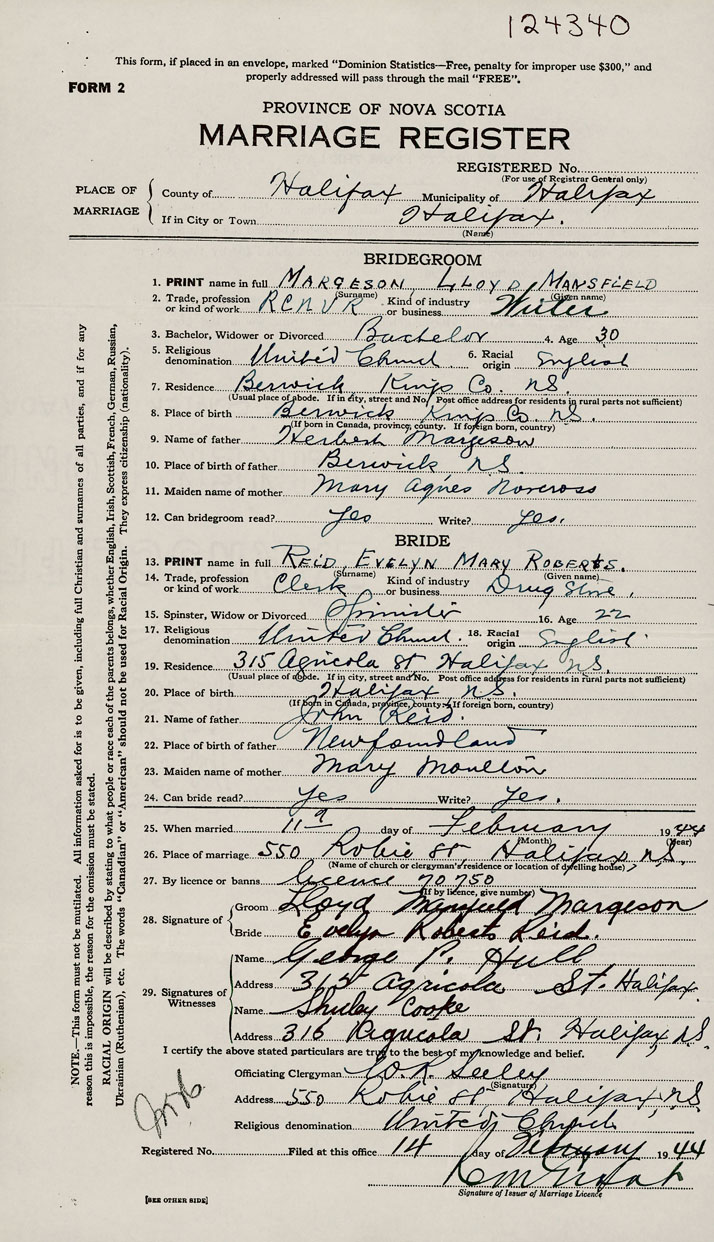 124340
This form, if placed in an envelope, marked "Dominion Statistics—Free, penalty for improper use $300," and
properly addressed will pass through the mail "FREE".
FORM 2
PROVINCE OF NOVA SCOTIA
MARRIAGE REGISTER
REGISTERED No.
(For use of Registrar General only)
PLACE OF MARRIAGE
County of Halifax Municipality of Halifax
If in City or Town Halifax.
(Name)
BRIDEGROOM
1. PRINT name in full MARGESON, LLOYD MANSFIELD
(Surname) (Given name)
2. Trade, profession or kind of work RCNVR Kind of industry or business Writer
3. Bachelor, Widower or Divorced Bachelor 4. Age 30
5. Religious denomination United Church 6. Racial origin English
7. Residence Berwick Kings Co. NS
(Usual place of abode. If in city, street and No. Post office address for residents in rural parts not sufficient)
8. Place of birth Berwick Kings Co. NS.
(If born in Canada, province, county. If foreign born, country)
9. Name of father Herbert Margeson
10. Place of birth of father Berwick NS.
11. Maiden name of mother Mary Agnes Norcross
12. Can bridegroom read? Yes Write? Yes.
BRIDE
13. PRINT name in full REID, EVELYN MARY ROBERTS.
(Surname) (Given name)
14. Trade, profession or kind of work Clerk Kind of industry or business Drug Store,
15. Spinster, Widow or Divorced Spinster 16. Age 22
17. Religious denomination United Church. 18. Racial origin English
19. Residence 315 Agricola St Halifax NS.
(Usual place of abode. If in city, street and No. Post office address for residents in rural parts not sufficient)
20. Place of birth Halifax NS.
(If born in Canada, province, county. If foreign born, country)
21. Name of father John Reid.
22. Place of birth of father Newfoundland
23. Maiden name of mother Mary Moulton
24. Can bride read? Yes Write? Yes.
25. When married 11th day of February 1944
(Month) (Year)
26. Place of marriage 550 Robie St, Halifax, NS.
(Name of church or clergyman's residence or location of dwelling house)
27. By licence or banns licence 70750
(If by licence, give number)
28. Signature of
Groom Lloyd Mansfield Margeson
Bride Evelyn Roberts Reid.
29. Signatures of Witnesses
Name George P. Hull
Address 315 Agricola St. Halifax
Name Shirley Cooke
Address 316 Agricola St. Halifax NS.
I certify the above stated particulars are true to the best of my knowledge and belief.
Officiating Clergyman W.R. Seeley
(Signature)
Address 550 Robie St Halifax, NS
Religious denomination United Church
Registered No. Filed at this office 14 day of February 1944
Signature of Issuer of Marriage Licence
[SEE OTHER SIDE]
NOTE.—This form must not be mutilated. All information asked for is to be given, including full Christian and surnames of all parties, and if for any
reason this is impossible, the reason for the omission must be stated.
RACIAL ORIGIN will be described by stating to what people or race each of the parents belongs, whether English, Irish, Scottish, French, German, Russian,
Ukrainian (Ruthenian), etc. The words "Canadian" or "American" should not be used for Racial Origin. They express citizenship (nationality).